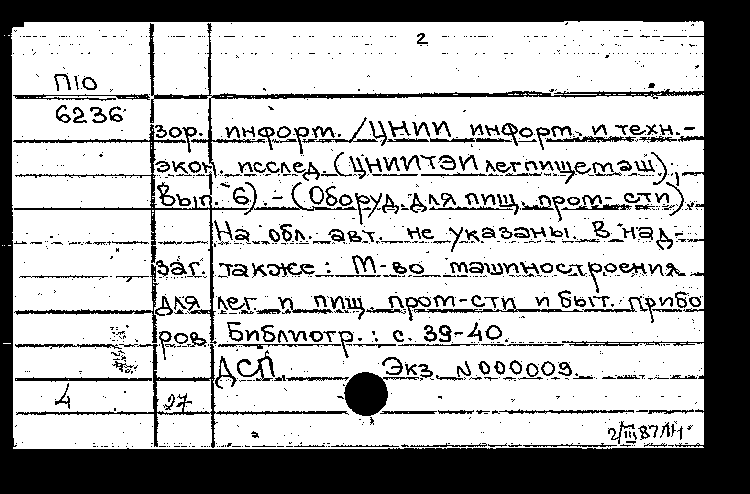 2
П10
6236
зор. информ. /ЦНИИ информ. и техн.-
экон. исслед. (ЦНИИТЭИлегпищемаш);
Вып. 6). - (Оборуд. для пищ. пром-сти).
На обл. авт. не указаны. В над-
заг. также: М-во машиностроения
для лег. и пищ. пром-сти и быт. прибо
ров. Библиогр.: с. 39-40.
ДСП. Экз. N 000009.
4 27